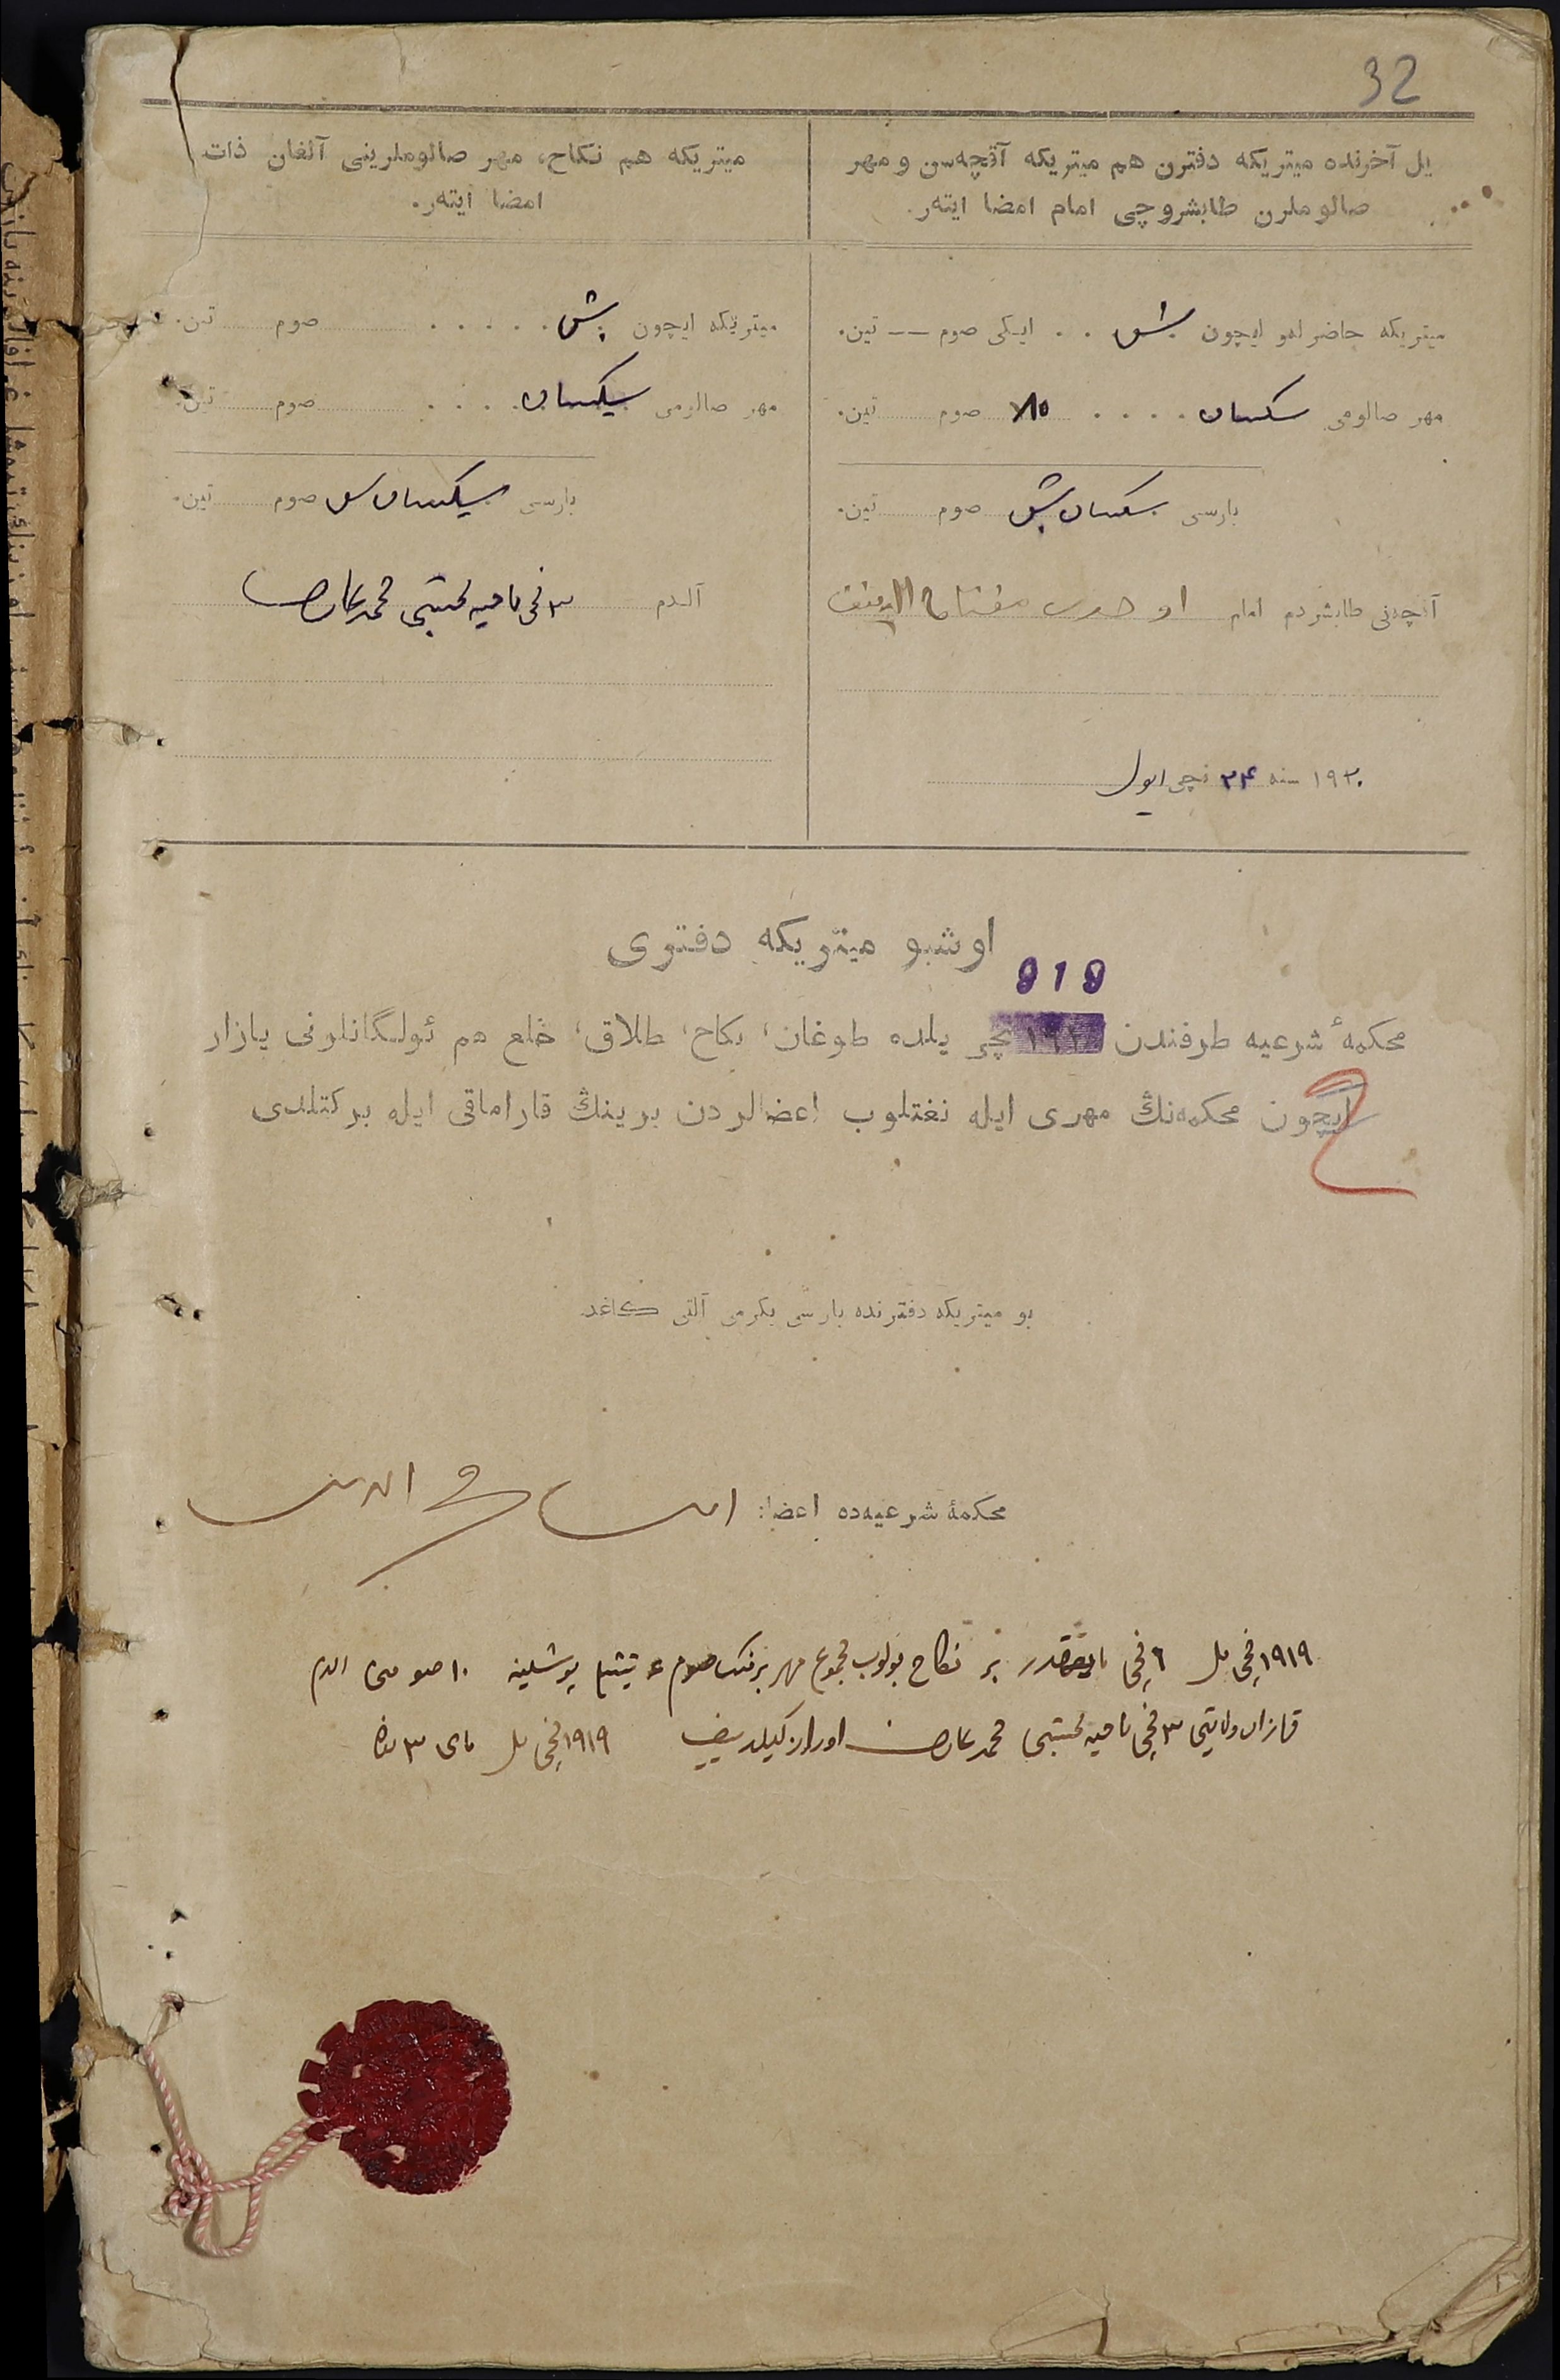 32
یل آخرنده میتریکه دفترن هم میتریکه آقچه‌سن و مهر
صالوملرن طابشروچی امام امضا ایته‌ر.
میتریکه هم نکاح، مهر صالوملرینی آلغان ذات
امضا ایته‌ر.
میتریکه حاضرله‌و ایچون بش . . ایکی صوم —— تین.
مهر صالومی سکسان . . . . ٨٥ صوم تین.
بارسی سکسان بش صوم تین.
آقچه‌نی طابشردم امام
١٩٢٠ سنه ٢٤ نچی ایول
میتریکه ایچون بش . . . . . صوم تین.
مهر صالومی سیکسان . . . . صوم تین.
بارسی سیکسان بش صوم تین.
آلدم ٣ نچی ناحیه محتسبی محمد عارف
اوشبو میتریکه دفتری
919
محکمهٔ شرعیه طرفندن ١٩٢ نچی یلده طوغان، نکاح، طلاق، خلع هم ئولگانلرنی یازار
ایچون محکمه‌نڭ مهری ایله نغتلوب اعضالردن برینڭ قاراماقی ایله برکتلدی
بو میتریکه دفترنده بارسی یکرمی آلتی کاغد.
محکمهٔ شرعیه‌ده اعضا:
١٩١٩ نچی یل ٦ نچی بر نکاح بولوب مجموع مهر برنک صوم پوشلینه ١٠ صوم الدم
قازان ولایتی ٣ نچی ناحیه محتسبی محمد عارف ١٩١٩ نچی یل مای ٣ نده